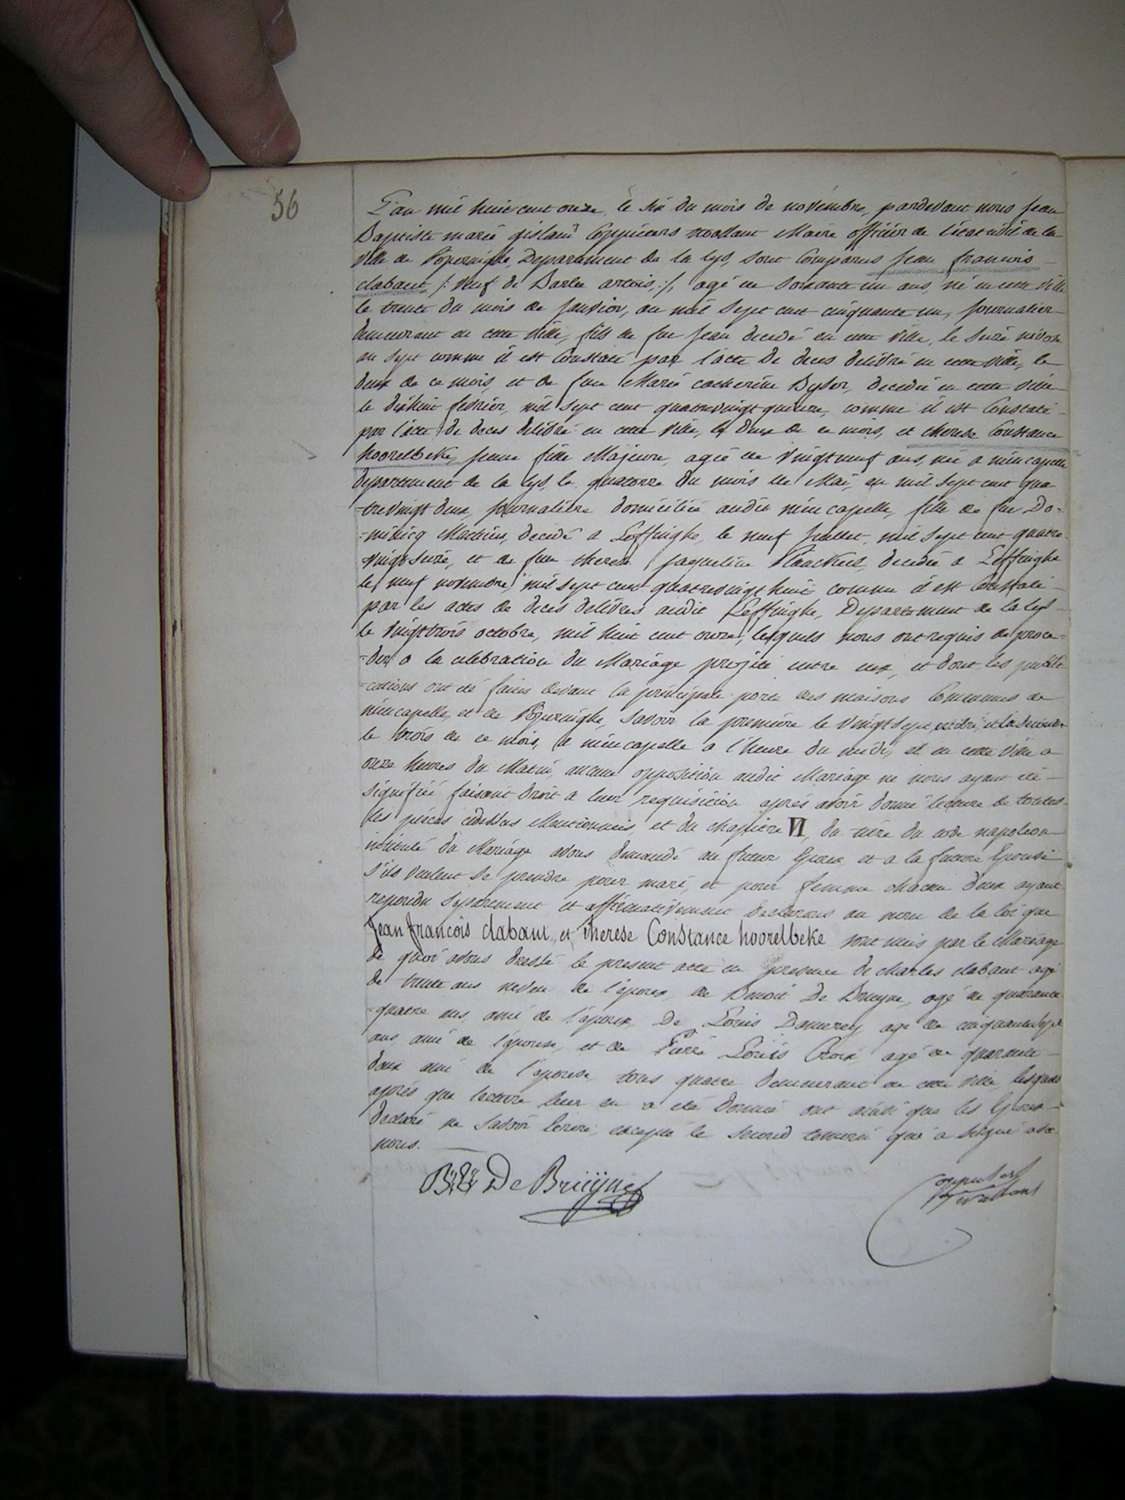 56
L'an mil huit cent onze, le six du mois de novembre, pardevant nous Jean
Baptiste marie gislain Maire officier de l'état civil de la
ville de Poperinghe Departement de la Lys, sont comparus Jean francois
clabaut, /: veuf de Barbe artois, :/, agé de soixante un ans, né en cette ville
le trente du mois de janvier, an mil sept cent cinquante un, journalier
demeurant en cette ville, fils de feu Jean decedé en cette ville, le seize nivose
an sept comme il est constaté par l'acte de deces delibré en cette ville, le
deux de ce mois et de feue Marie catherine decedée en cette ville
le dixhuit fevrier, mil sept cent quatrevingt quatre, comme il est constaté
par l'acte de deces delibré en cette ville, le deux de ce mois, et therese Constance
hoorelbeke, jeune fille Majeure, agée de vingtneuf ans, née a niencapelle
departement de la Lys le quatorze du mois de Mai, an mil sept cent qua
-trevingt deux, journalière domiciliée audit niencapelle, fille de feu Do-
-minicq decedé a Leffinghe, le neuf juillet, mil sept cent quatre-
vingtseize, et de feue therese jaqueline decedée a Leffinghe
le neuf novembre mil sept cent quatrevingt huit comme il est constaté
par les actes de deces delibrés audit Leffinghe, Departement de la Lys
le vingttrois octobre, mil huit cent onze, lesquels nous ont requis de proce-
-der a la celebration du Mariage projeté entre eux, et dont les publi-
-cations ont été faites devant la principale porte des maisons communes de
niencapelle et de Poperinghe, savoir la première le vingtsept octobre, et la seconde
le trois de ce mois, a niencapelle a l'heure du midi, et en cette ville a
onze heures du Matin, aucune opposition audit Mariage ne nous ayant été
signifiée faisant droit a leur requisition après avoir donné lecture de toutes
les pieces cidessus Mentionnées, et du chapitre VI, du titre du code napoleon
intitulé du Mariage avons demandé au futur Epoux et a la future Epouse
s'ils veulent se prendre pour mari, et pour femme chacun d'eux ayant
repondu separement et affirmativement declarons au nom de la loi que
Jean francois clabaut, et therese Constance hoorelbeke sont unis par le Mariage
de quoi avons dressé le present acte en presence de charles clabaut agé
de trente ans neveu de l'époux, de Benoit De Bruyne, agé de quarante
-quatre ans, ami de l'époux, De Louis agé de cinquantesept
ans ami de l'épouse, et de Pierre Louis agé de quarante
deux ami de l'épouse tous quatre demeurant en cette ville, lesquels
après que lecture leur en a été donnée ont ainsi que les Epoux
declaré ne savoir ecrire, excepté le second temoin qui a signé avec
nous.
De Bruÿne